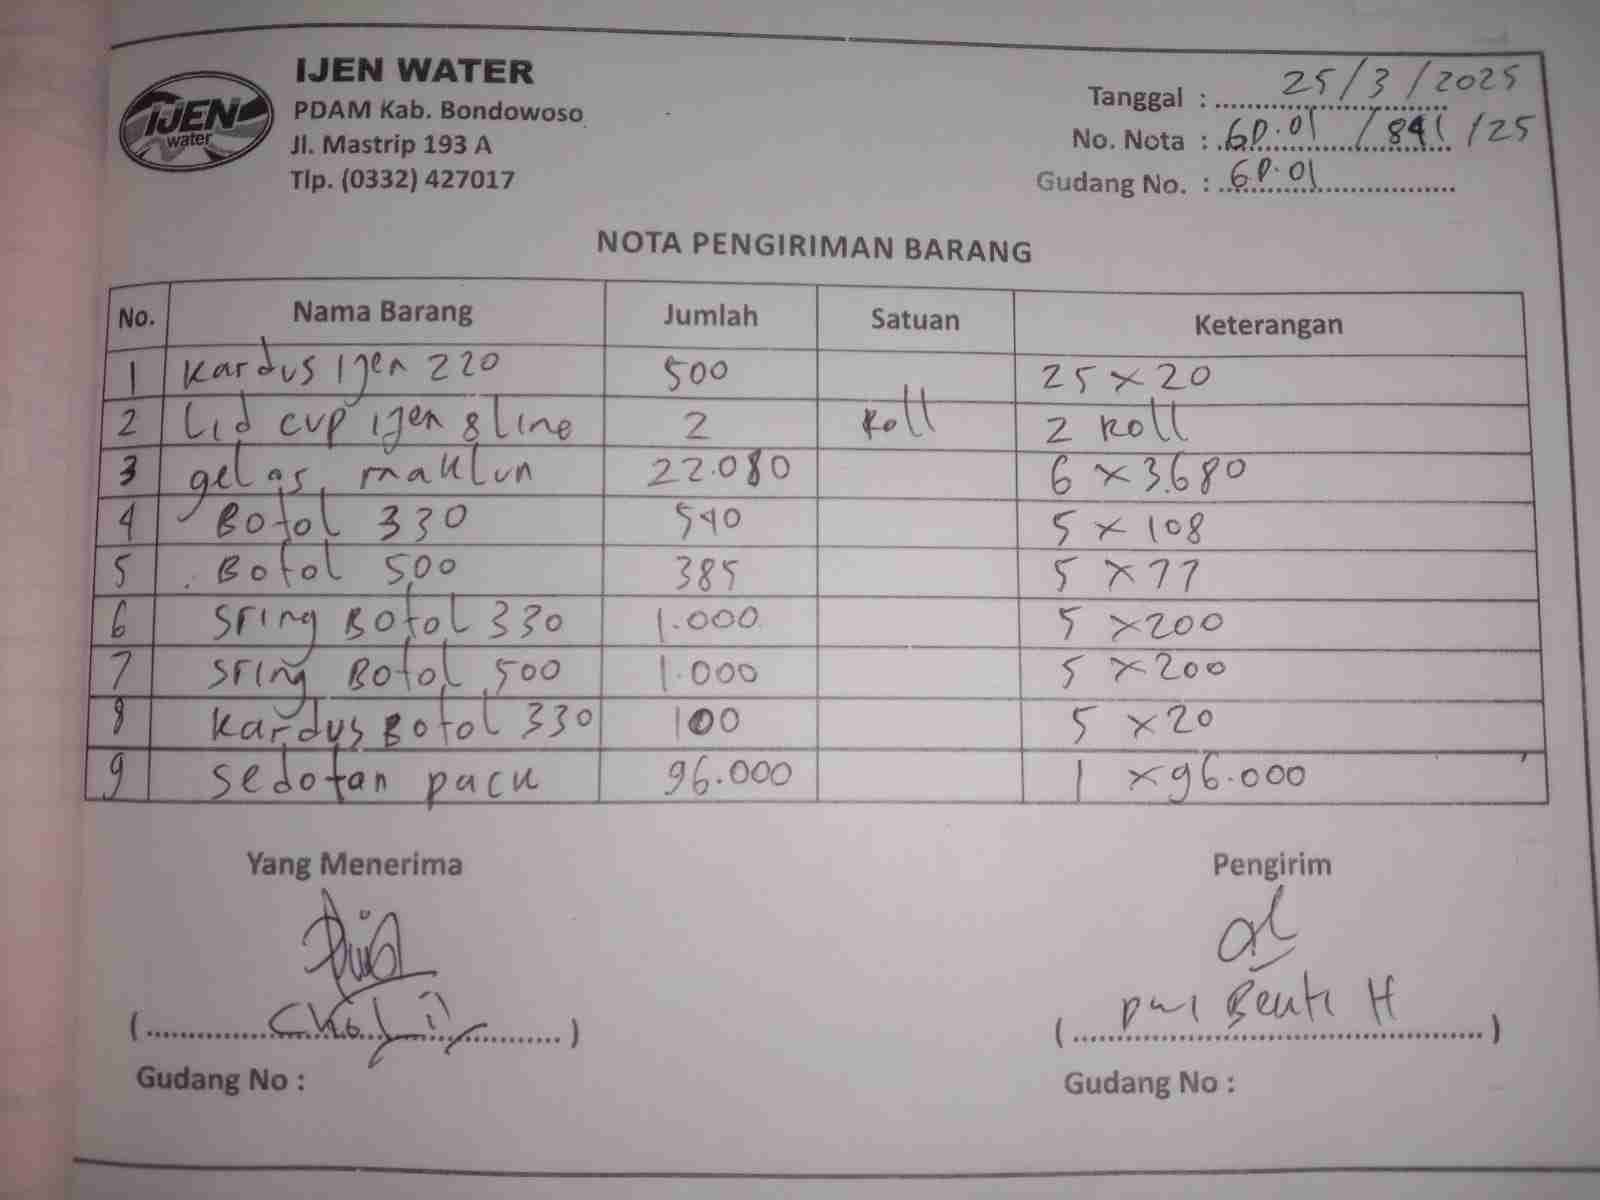 IJEN
water
IJEN WATER
PDAM Kab. Bondowoso
Jl. Mastrip 193 A
Tlp. (0332) 427017
Tanggal : 25/3/2025
No. Nota : GD.01 / 841 / 25
Gudang No. : GD.01
NOTA PENGIRIMAN BARANG
No. Nama Barang Jumlah Satuan Keterangan
1 Kardus Ijen 220 500 25 x 20
2 Lid cup ijen 8 line 2 Roll 2 Roll
3 gelas maklun 22.080 6 x 3.680
4 Botol 330 540 5 x 108
5 Botol 500 385 5 x 77
6 Sring Botol 330 1.000 5 x 200
7 Sring Botol 500 1.000 5 x 200
8 Kardus Botol 330 100 5 x 20
9 Sedotan pack 96.000 1 x 96.000
Yang Menerima Pengirim
Gudang No : Gudang No :